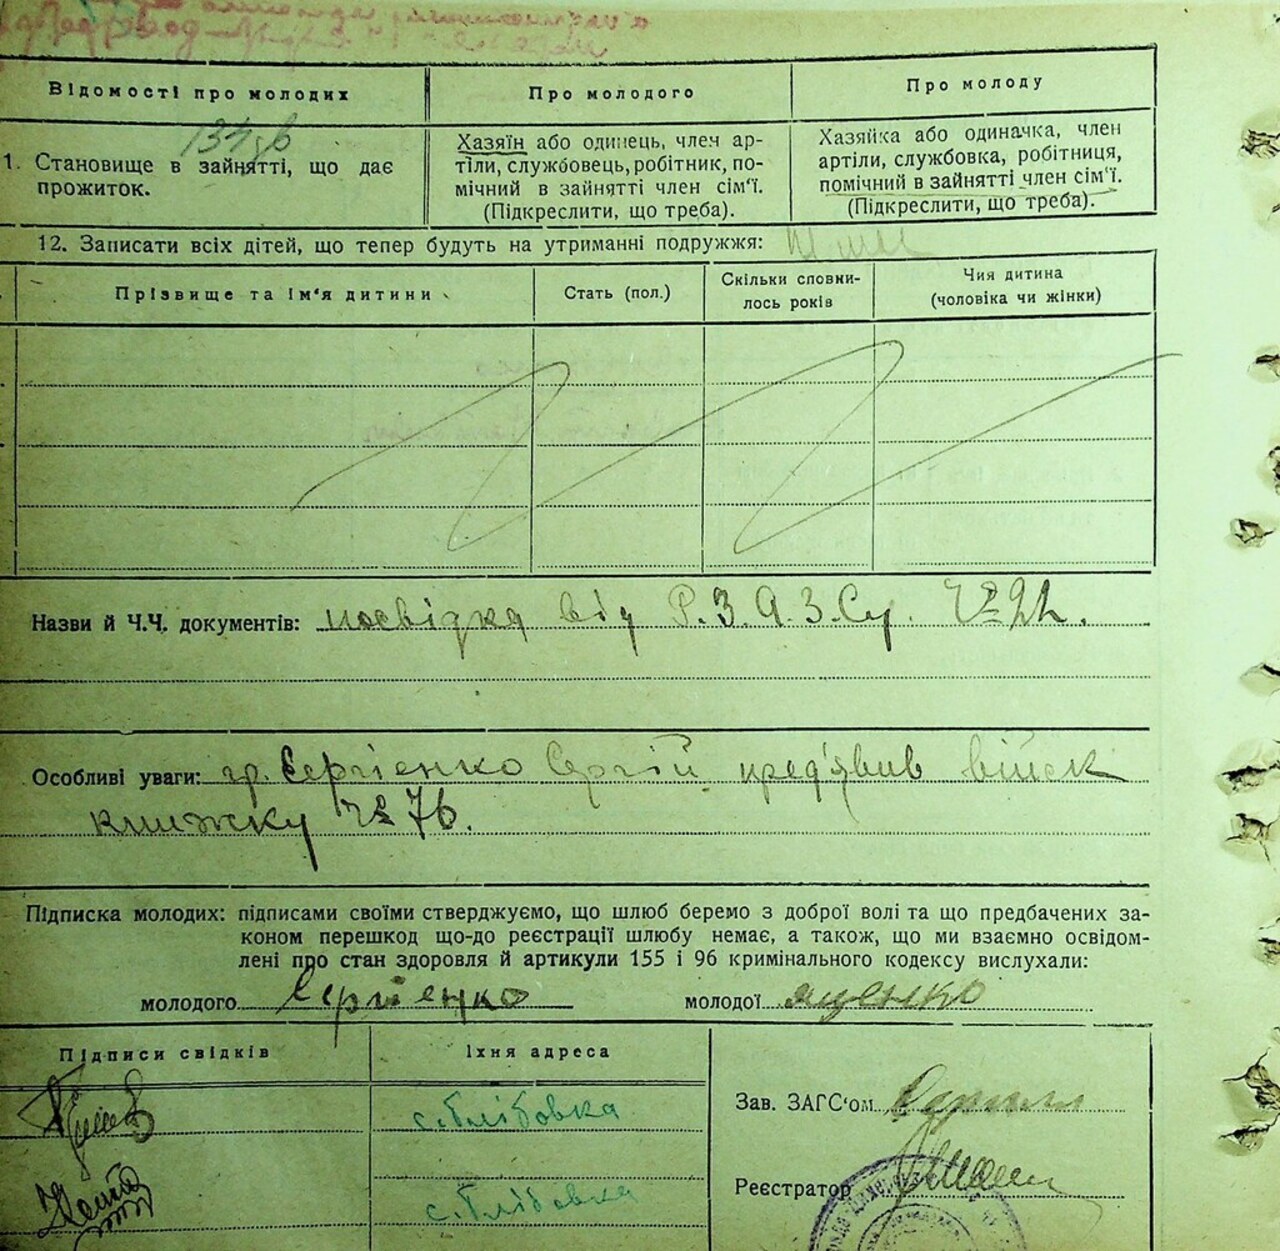 Відомості про молодих
Про молодого
Про молоду
1. Становище в зайнятті, що дає
прожиток.
Хазяїн або одинець, член ар-
тілі, службовець, робітник, по-
мічний в зайнятті член сім'ї.
(Підкреслити, що треба).
Хазяйка або одиначка, член
артіли, службовка, робітниця,
помічний в зайнятті член сім'ї.
(Підкреслити, що треба).
12. Записати всіх дітей, що тепер будуть на утриманні подружжя:
Прізвище та ім'я дитини
Стать (пол.)
Скільки сповни-
лось років
Чия дитина
(чоловіка чи жінки)
Назви й Ч.Ч. документів: посвідка від Р.З.А.З.Су.
Особливі уваги: гр. Сергієнко Сергій пред'явив війск
книжку № 76.
Підписка молодих: підписами своїми стверджуємо, що шлюб беремо з доброї волі та що предбачених за-
коном перешкод що-до реєстрації шлюбу немає, а також, що ми взаємно освідом-
лені про стан здоровля й артикули 155 і 96 кримінального кодексу вислухали:
молодого Сергієнко молодої Яценко
Підписи свідків
Їхня адреса
с. Глібовка
с. Глібовка
Зав. ЗАГС'ом
Реєстратор